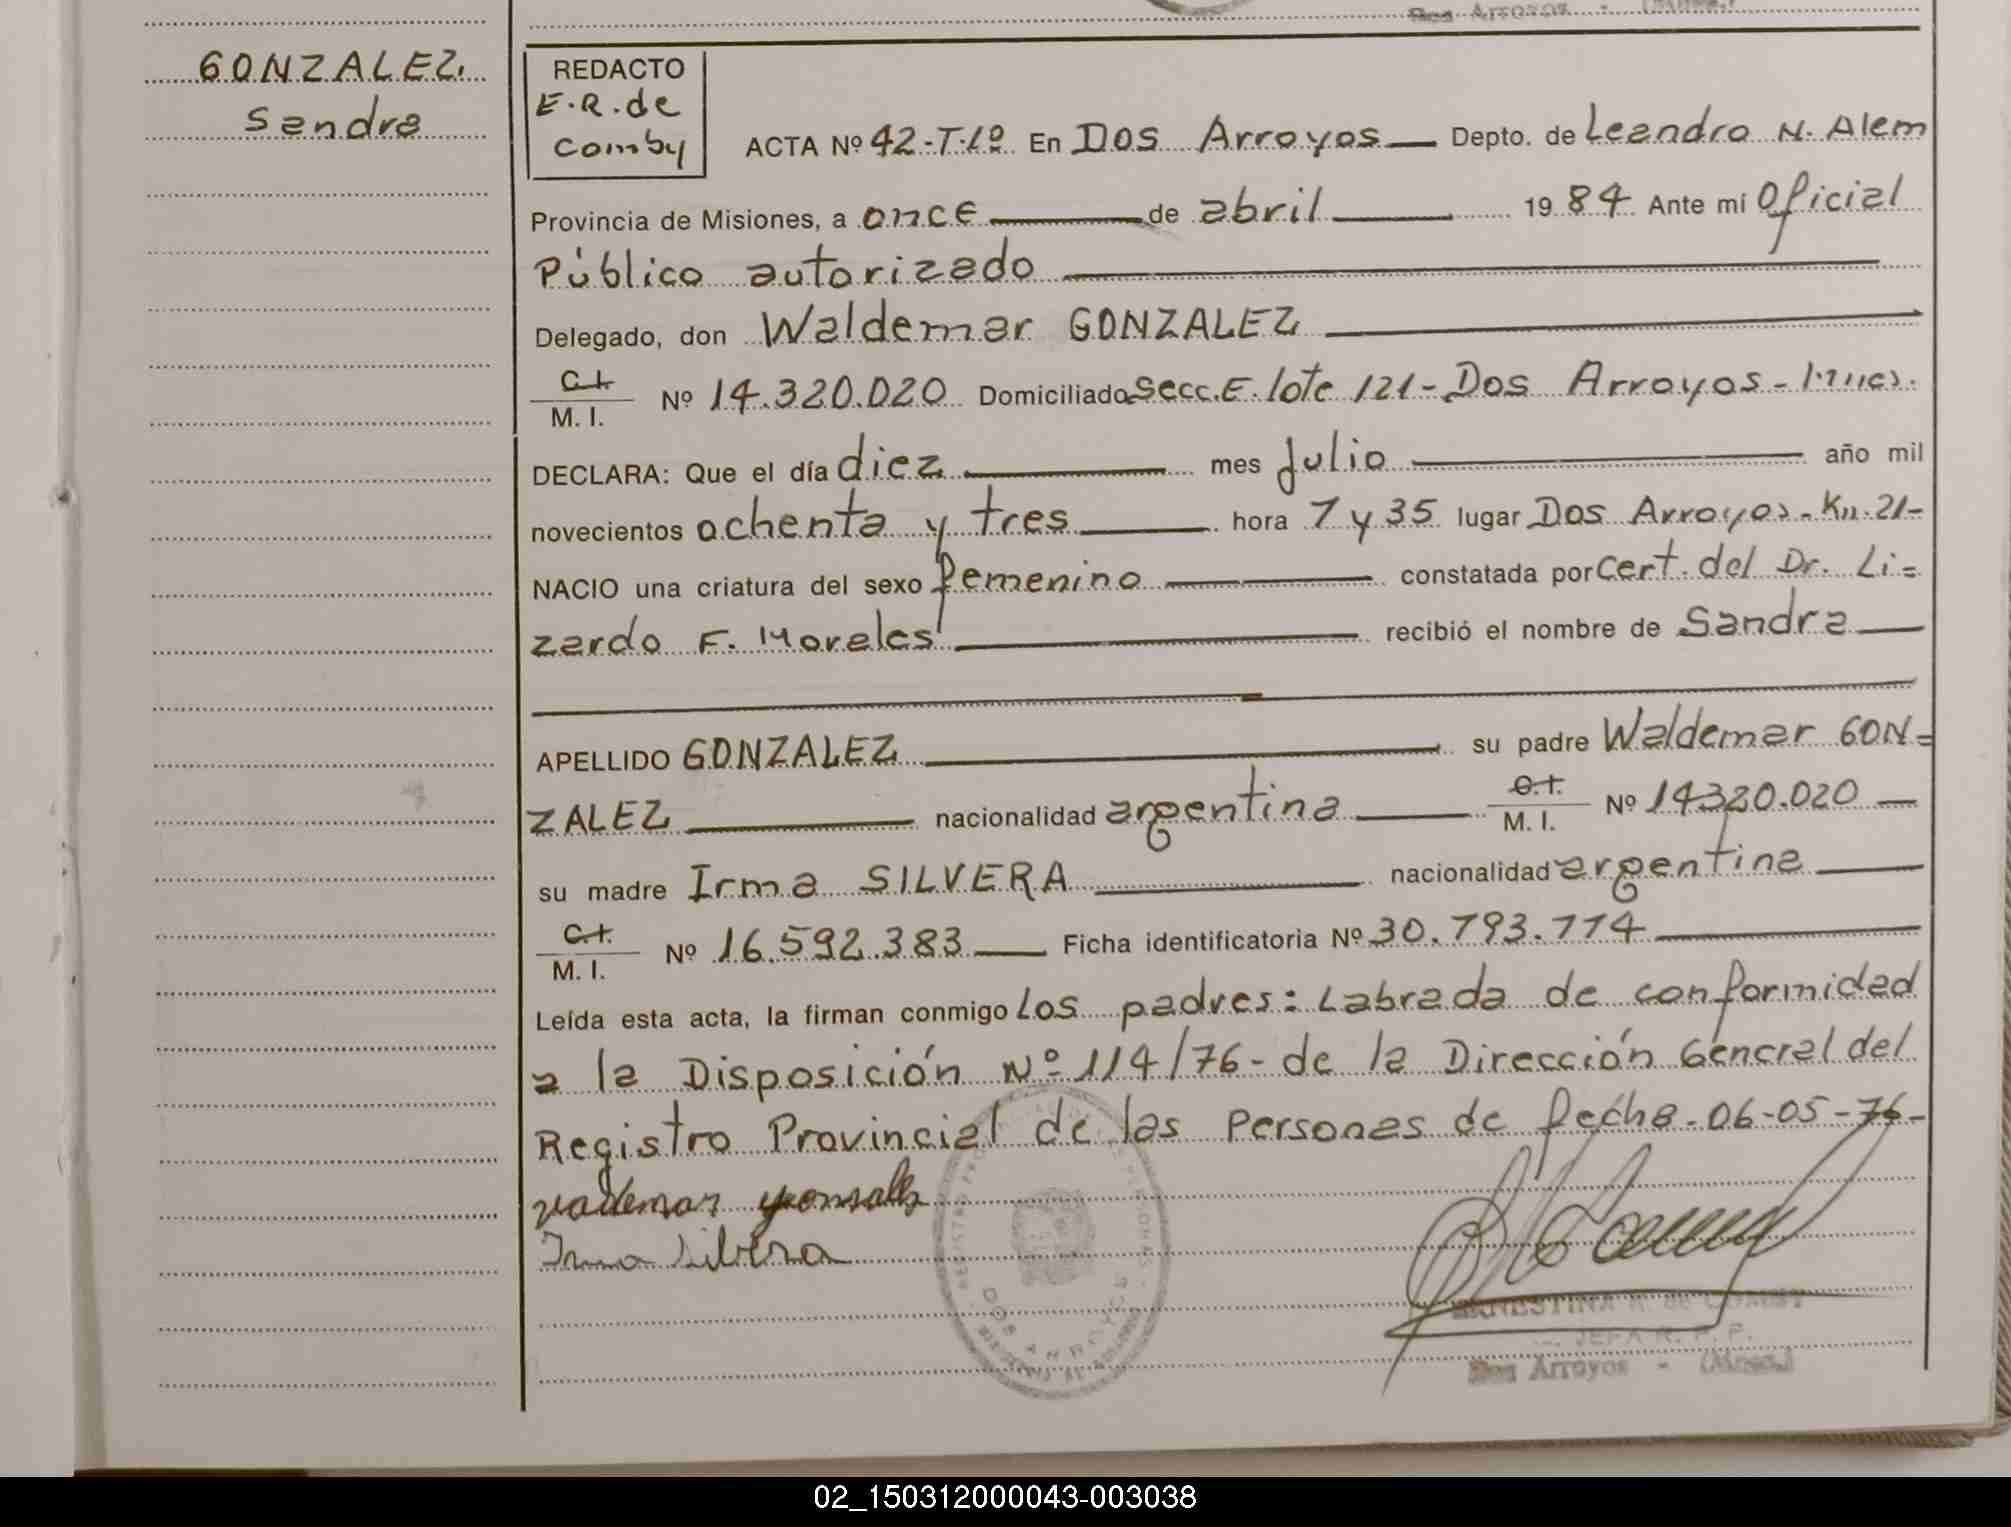 Dos Arroyos - (Mnes.)
GONZALEZ
Sandra
REDACTO
E.R. de
Comby
ACTA Nº 42-T-1º En Dos Arroyos Depto. de Leandro N. Alem
Provincia de Misiones, a once de abril 1984 Ante mí Oficial
Público autorizado
Delegado, don Waldemar GONZALEZ
C.I.
M. I. Nº 14.320.020 Domiciliado Secc. E. lote 121- Dos Arroyos - Mnes.
DECLARA: Que el día diez mes Julio año mil
novecientos ochenta y tres hora 7 y 35 lugar Dos Arroyos - Km. 21-
NACIO una criatura del sexo femenino constatada por Cert. del Dr. Li=
zardo F. Morales recibió el nombre de Sandra
APELLIDO GONZALEZ su padre Waldemar GON=
ZALEZ nacionalidad argentina C.I. M. I. Nº 14320.020
su madre Irma SILVERA nacionalidad argentina
C.I.
M. I. Nº 16.592.383 Ficha identificatoria Nº 30.793.774
Leída esta acta, la firman conmigo Los padres: Labrada de conformidad
a la Disposición Nº 114/76- de la Dirección General del
Registro Provincial de las Personas de fecha - 06-05-76-
Irma Silvera
DOS ARROYOS
ERNESTINA R. de COMBY
JEFA R. P. P.
Dos Arroyos - (Mnes.)
02_150312000043-003038